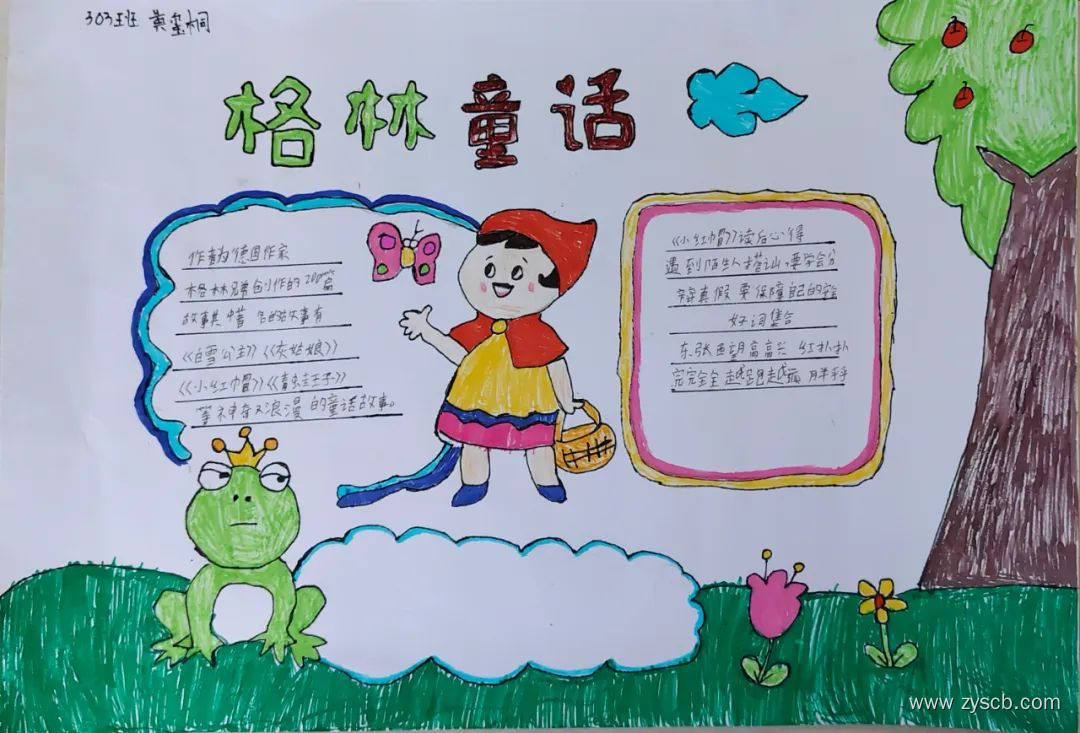 303班 黄玺桐
格林童话
作者为德国作家
格林兄弟创作的200篇
故事其中著名的故事有
《白雪公主》《灰姑娘》
《小红帽》《青蛙王子》
等神奇又浪漫的童话故事。
《小红帽》读后心得
遇到陌生人搭讪,要学会分
辩真假 要保障自己的安全
好词集合
东张西望高高兴 红扑扑
完完全全
www.zyscb.com